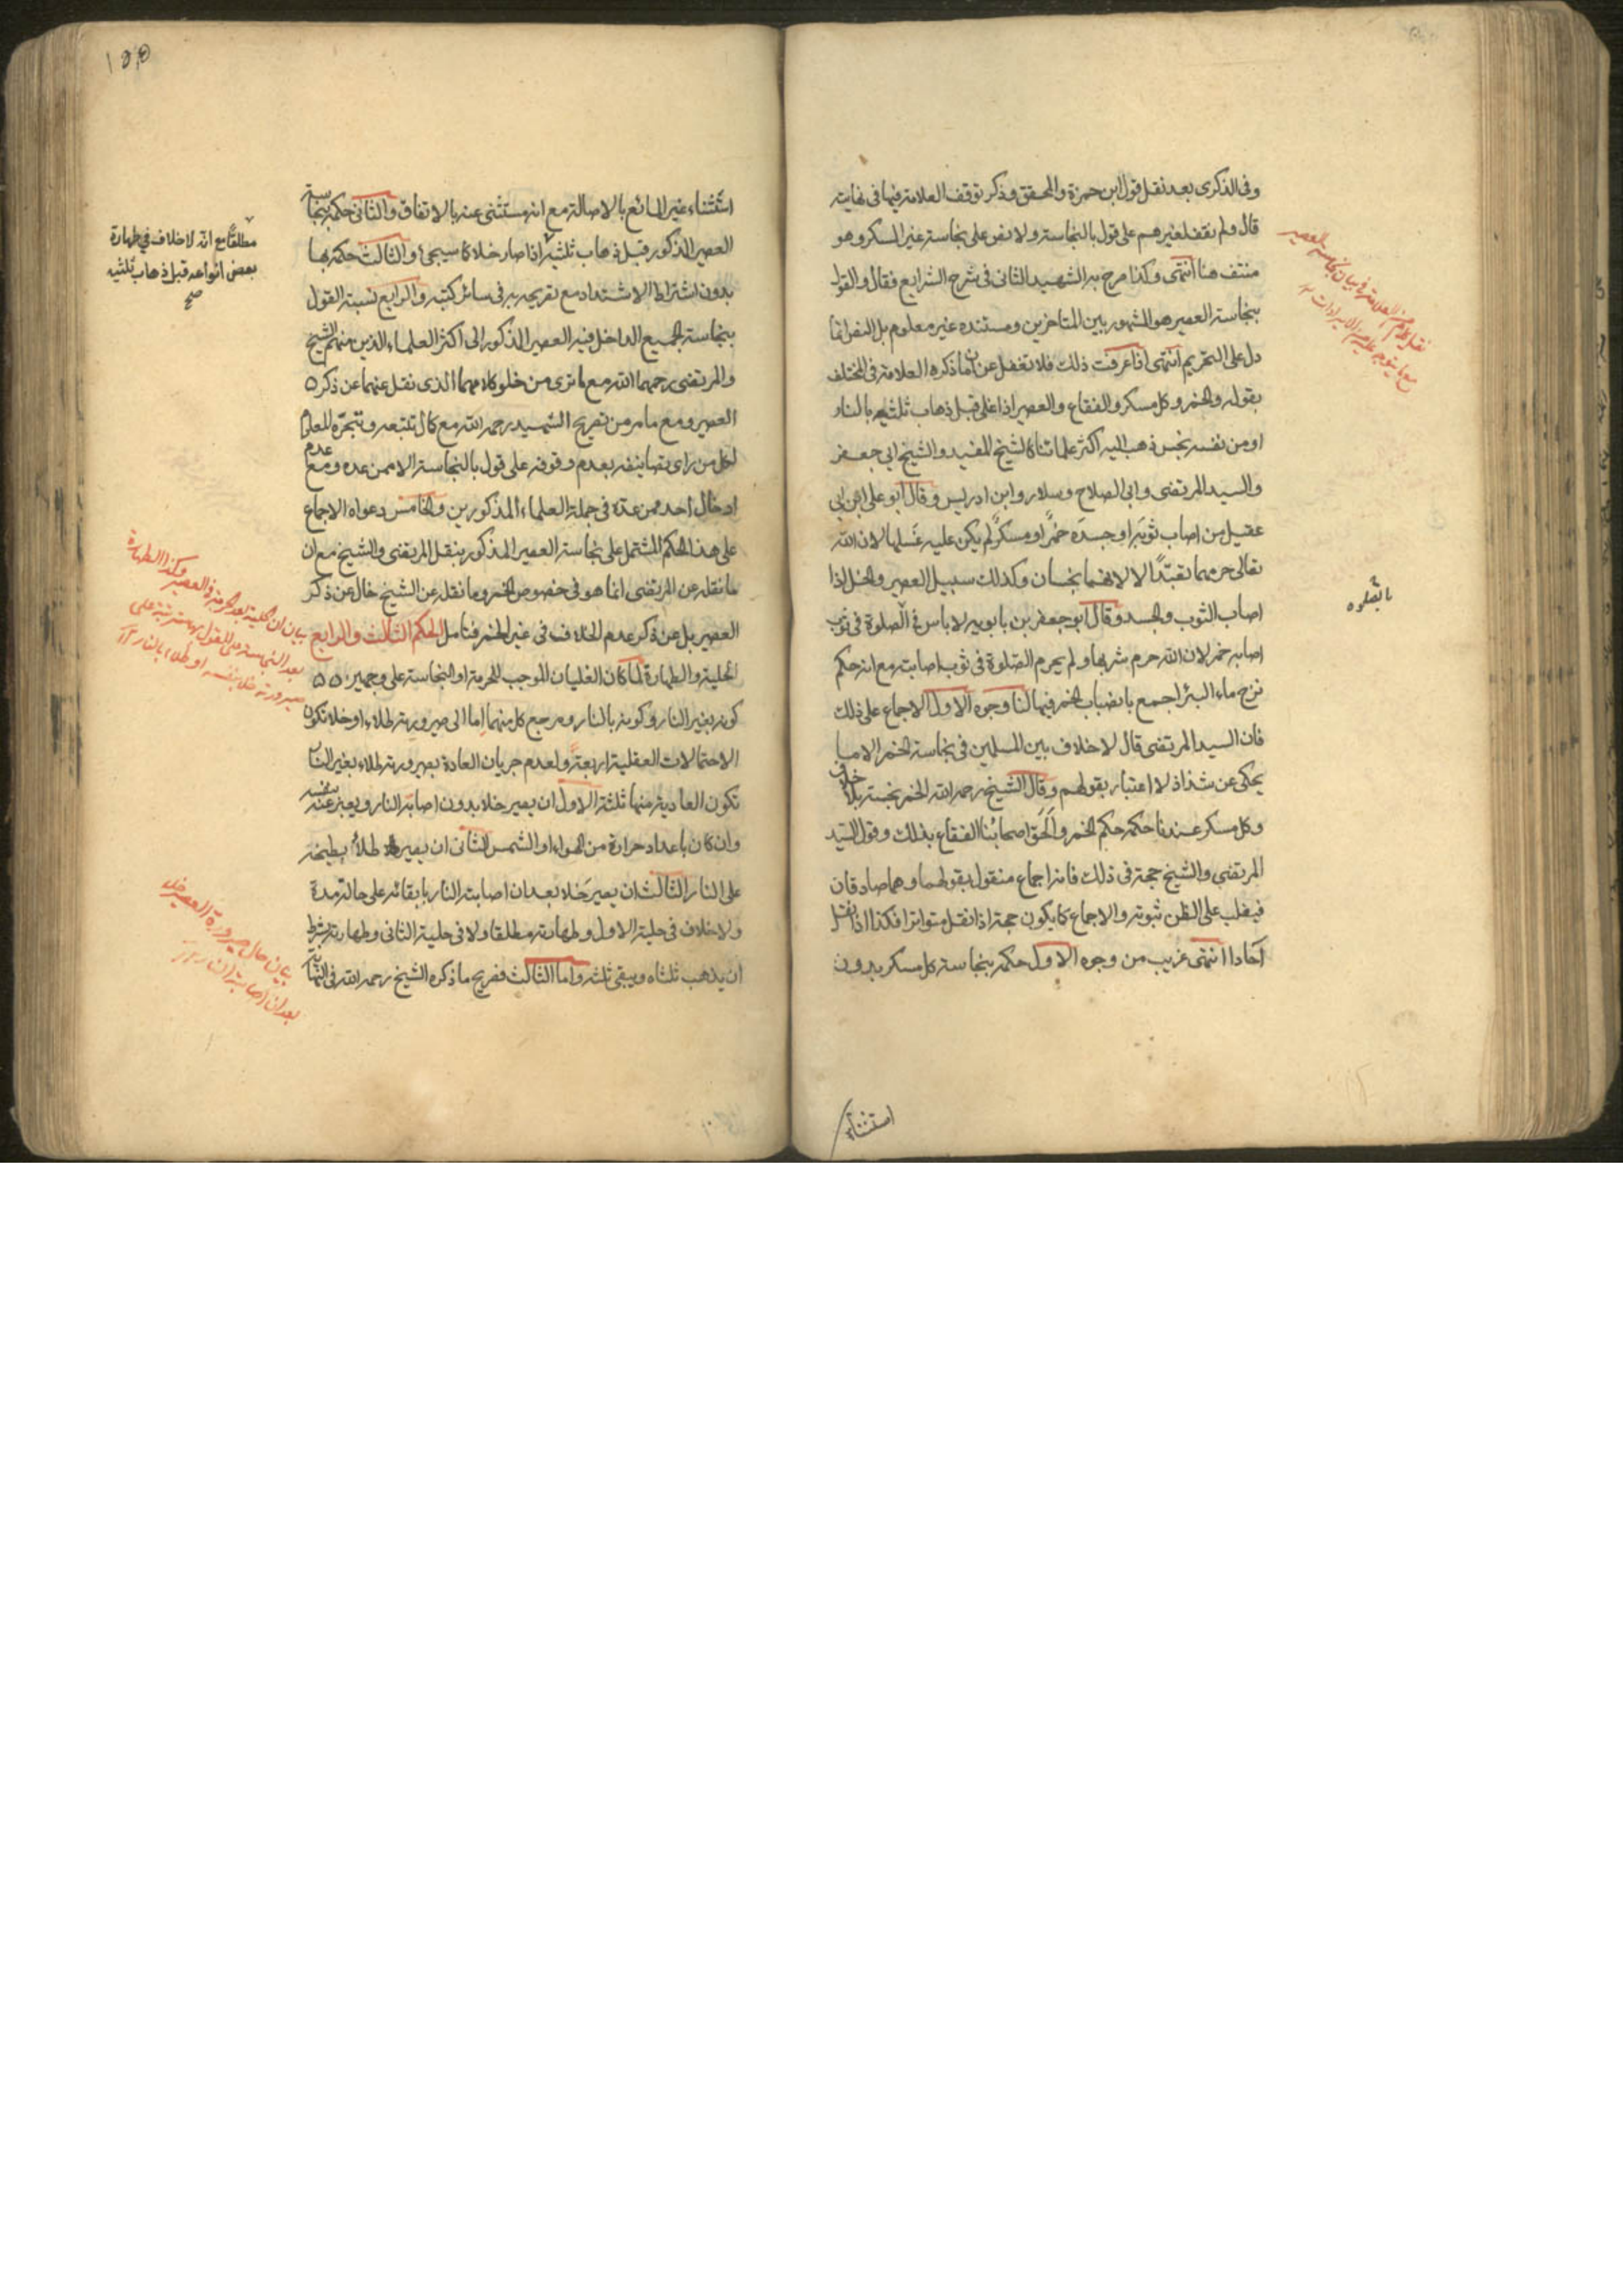 وفى الذكرى بعد نقل قول ابن حمزة والمحقق وذكر توقف العلامة فيها فى نهايته
قال ولم نقف لغيرهم على قول بالنجاسة ولا نص على نجاسة غير المسكر وهو
منتف هنا انتهى وكذا صرح به الشهيد الثانى فى شرح الشرايع فقال والقول
بنجاسة العصير هو المشهور بين المتاخرين ومستنده غير معلوم بل النص انما
دل على التحريم انتهى اذا عرفت ذلك فلا تغفل عن ان ما ذكره العلامة فى المختلف
بقوله والخمر وكل مسكر والفقاع والعصير اذا غلى قبل ذهاب ثلثيه بالنار
او من نفسه نجس ذهب اليه اكثر علمائنا كالشيخ المفيد والشيخ ابى جعفر
والسيد المرتضى وابى الصلاح وسلار وابن ادريس وقال ابو على ابن ابى
عقيل من اصاب ثوبه او جسده خمر او مسكر لم يكن عليه غسلها لان الله
تعالى حرمهما تعبدًا لا لانهما نجسان وكذلك سبيل العصير والخل اذا
اصاب الثوب والجسد وقال ابو جعفر بن بابويه لا باس فى الصلوة فى ثوب
اصابه خمر لان الله حرم شربها ولم يحرم الصلوة فى ثوب اصابته مع انه حكم
نزح ماء البئر اجمع بانصباب الخمر فيها لنا وجوه الاول الاجماع على ذلك
فان السيد المرتضى قال لا خلاف بين المسلمين فى نجاسة الخمر الا ما
يحكى عن شذاذ لا اعتبار بقولهم وقال الشيخ رحمه الله الخمر نجسة بلا خلاف
وكل مسكر عندنا حكمه حكم الخمر والحق اصحابنا الفقاع بذلك وقول السيد
المرتضى والشيخ حجة فى ذلك فانه اجماع منقول بقولهما وهما صادقان
فيغلب على الظن ثبوته والاجماع كما يكون حجة اذا نقل متواترا فكذا اذا نقل
آحادا انتهى غريب من وجوه الاول حكمه بنجاسة كل مسكر بدون
استثناء
نقل كلام من العلامة فى بيان نجاسة العصير
مع ما يتوجه عليه من الايرادات
155
استثناء غير المائع بالاصالة مع انه مستثنى عنه بالاتفاق والثانى حكمه بنجاسة
العصير المذكور قبل ذهاب ثلثيه اذا صار خلا كما سيجئ والثالث حكمه بها
بدون اشتراط الاشتداد مع تصريحه به فى سائر كتبه والرابع نسبة القول
بنجاسة الجميع الداخل فيه العصير المذكور الى اكثر العلماء الذين منهم الشيخ
والمرتضى رحمهما الله مع ما ترى من خلو كلامهما الذى نقل عنهما عن ذكر
العصير ومع ما مر من تصريح الشهيد رحمه الله مع كمال تتبعه وتبحره للعلم
لكل من راى تصانيفه بعدم وقوفه على قول بالنجاسة الا ممن عده ومع عدم
ادخال احد ممن عده فى جملة العلماء المذكورين والخامس دعواه الاجماع
على هذا الحكم المشتمل على نجاسة العصير المذكور بنقل المرتضى والشيخ مع ان
ما نقله عن المرتضى انما هو فى خصوص الخمر وما نقله عن الشيخ خال عن ذكر
العصير بل عن ذكر عدم الخلاف فى غير الخمر فتامل الحكم الثالث والرابع
الحلية والطهارة لما كان الغليان الموجب للحرمة او النجاسة على وجهين
كونه بغير النار وكونه بالنار ومرجع كل منهما اما الى صيرورته طلاء او خلا تكون
الاحتمالات العقلية اربعة ولعدم جريان العادة بصيرورته طلاء بغير النار
تكون العادية منها ثلثة الاول ان يصير خلا بدون اصابة النار ويعبر عنه بنفسه
وان كان باعداد حرارة من الهواء او الشمس الثانى ان يصير طلاء بطبخه
على النار الثالث ان يصير خلا بعد ان اصابته النار بابقائه على حالة مدة
ولا خلاف فى حلية الاول وطهارته مطلقا ولا فى حلية الثانى وطهارته بشرط
ان يذهب ثلثاه ويبقى ثلثه واما الثالث فصريح ما ذكره الشيخ رحمه الله فى النهاية
مطلقا مع انه لا خلاف فى طهارة
بعض انواعه قبل ذهاب ثلثيه
صح
بيان ان الحلية بعد الحرمة فى العصير وكذا الطهارة
بعد النجاسة على القول بها مترتبة على
صيرورته خل بنفسه او طلاء بالنار
بيان حال صيرورة العصير خل
بعد ان اصابته النار